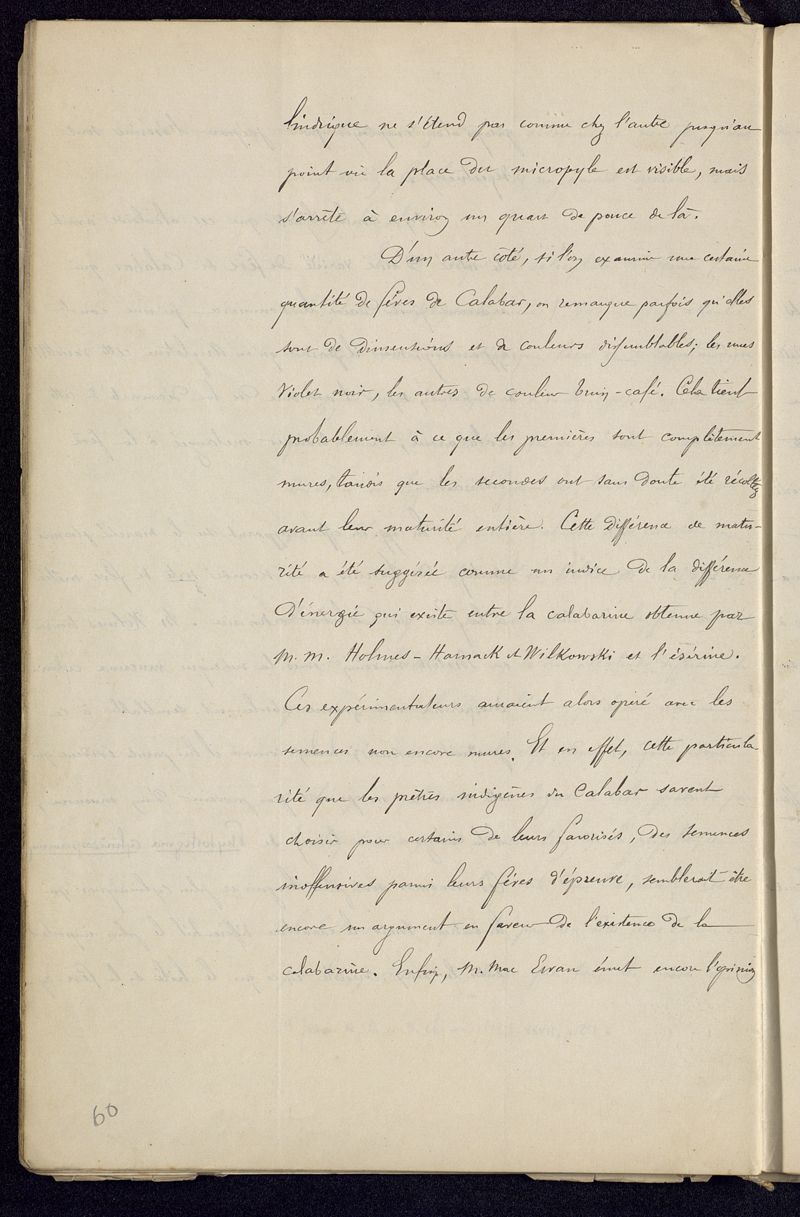 lindrique ne s'étend pas comme chez l'autre jusqu'au
point où la place du micropyle est visible, mais
s'arrête à environ un quart de pouce de là.
D'un autre côté, si l'on examine une certaine
quantité de fèves de Calabar, on remarque parfois qu'elles
sont de dimensions et de couleurs dissemblables; les unes
violet noir, les autres de couleur brun-café. Cela tient
probablement à ce que les premières sont complètement
mures, tandis que les secondes ont sans doute été récoltées
avant leur maturité entière. Cette différence de matu-
rité a été suggérée comme un indice de la différence
d'énergie qui existe entre la calabarine obtenue par
M.M. Holmes-Harnack et Wilkowski et l'ésérine.
Ces expérimentateurs auraient alors opéré avec les
semences non encore mures. Et en effet, cette particula
rité que les prêtres indigènes du Calabar savent
choisir pour certains de leurs favorisés, des semences
inoffensives parmi leurs fèves d'épreuve, semblerait être
encore un argument en faveur de l'existence de la
calabarine. Enfin, M. Mac Ewan émet encore l'opinion
60